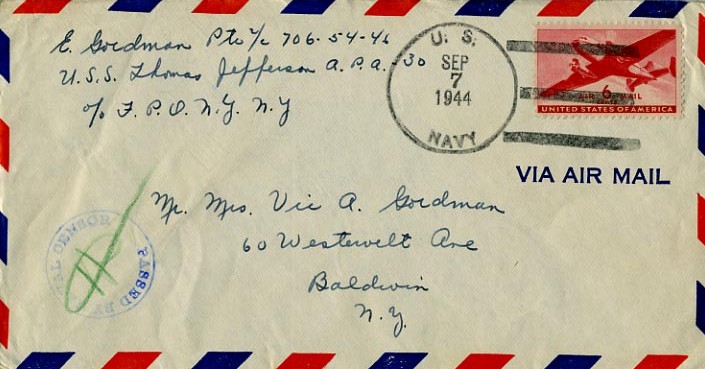 E. Goedman Ptr 1/c 706-54-46
U.S.S. Thomas Jefferson A.P.A.-30
c/o F.P.O. N.Y. N.Y
U. S.
SEP
7
1944
NAVY
AIR 6 MAIL
UNITED STATES OF AMERICA
VIA AIR MAIL
Mr. Mrs. Vic A. Goedman
60 Westervelt Ave
Baldwin
N.Y.
PASSED BY
NAVAL CENSOR